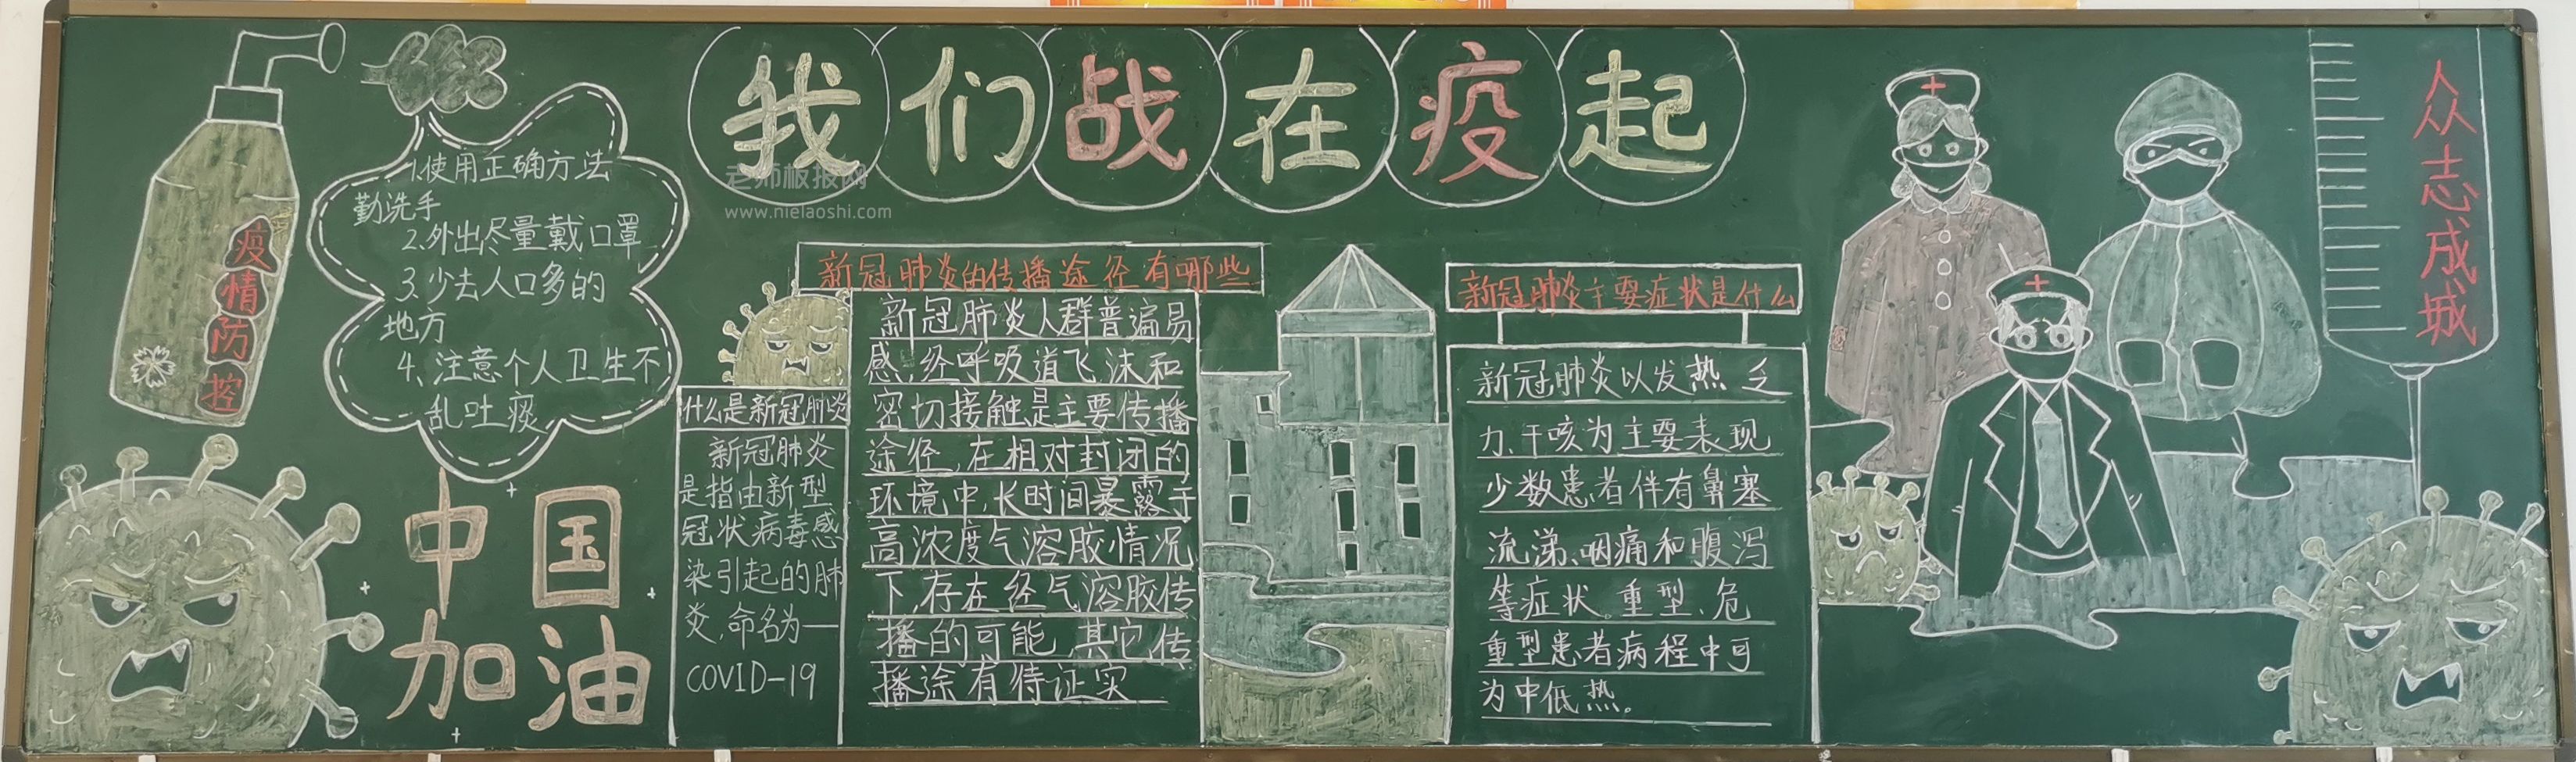 我们战在疫起
老师板报网
www.nielaoshi.com
疫情防控
1.使用正确方法
勤洗手
2.外出尽量戴口罩
3.少去人口多的
地方
4.注意个人卫生不
乱吐痰
中国
加油
什么是新冠肺炎
新冠肺炎
是指由新型
冠状病毒感
染引起的肺
炎,命名为—
COVID-19
新冠肺炎的传播途径有哪些
新冠肺炎人群普遍易
感,经呼吸道飞沫和
密切接触是主要传播
途径,在相对封闭的
环境中,长时间暴露于
高浓度气溶胶情况
下,存在经气溶胶传
播的可能,其它传
播途有待证实
新冠肺炎主要症状是什么
新冠肺炎以发热乏
力、干咳为主要表现
少数患者伴有鼻塞
流涕、咽痛和腹泻
等症状.重型、危
重型患者病程中可
为中低热。
众志成城